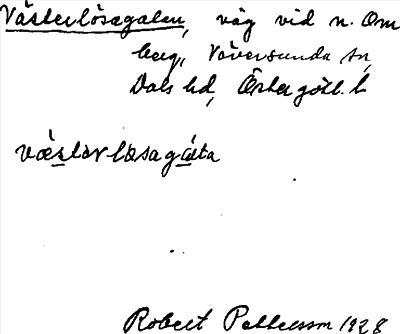 Västerlösagatan, väg vid n. Om
berg, Väversunda sn,
Dals hd, Östergötl. l.
væstərløsagáta
Robert Pettersson 1928